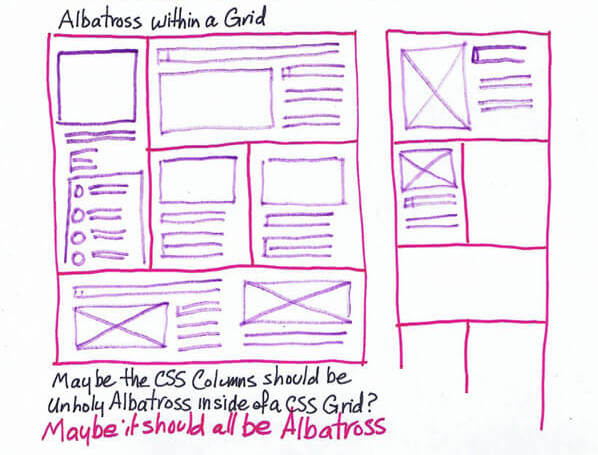 Albatross within a Grid
Maybe the CSS Columns should be
Unholy Albatross inside of a CSS Grid?
Maybe it should all be Albatross